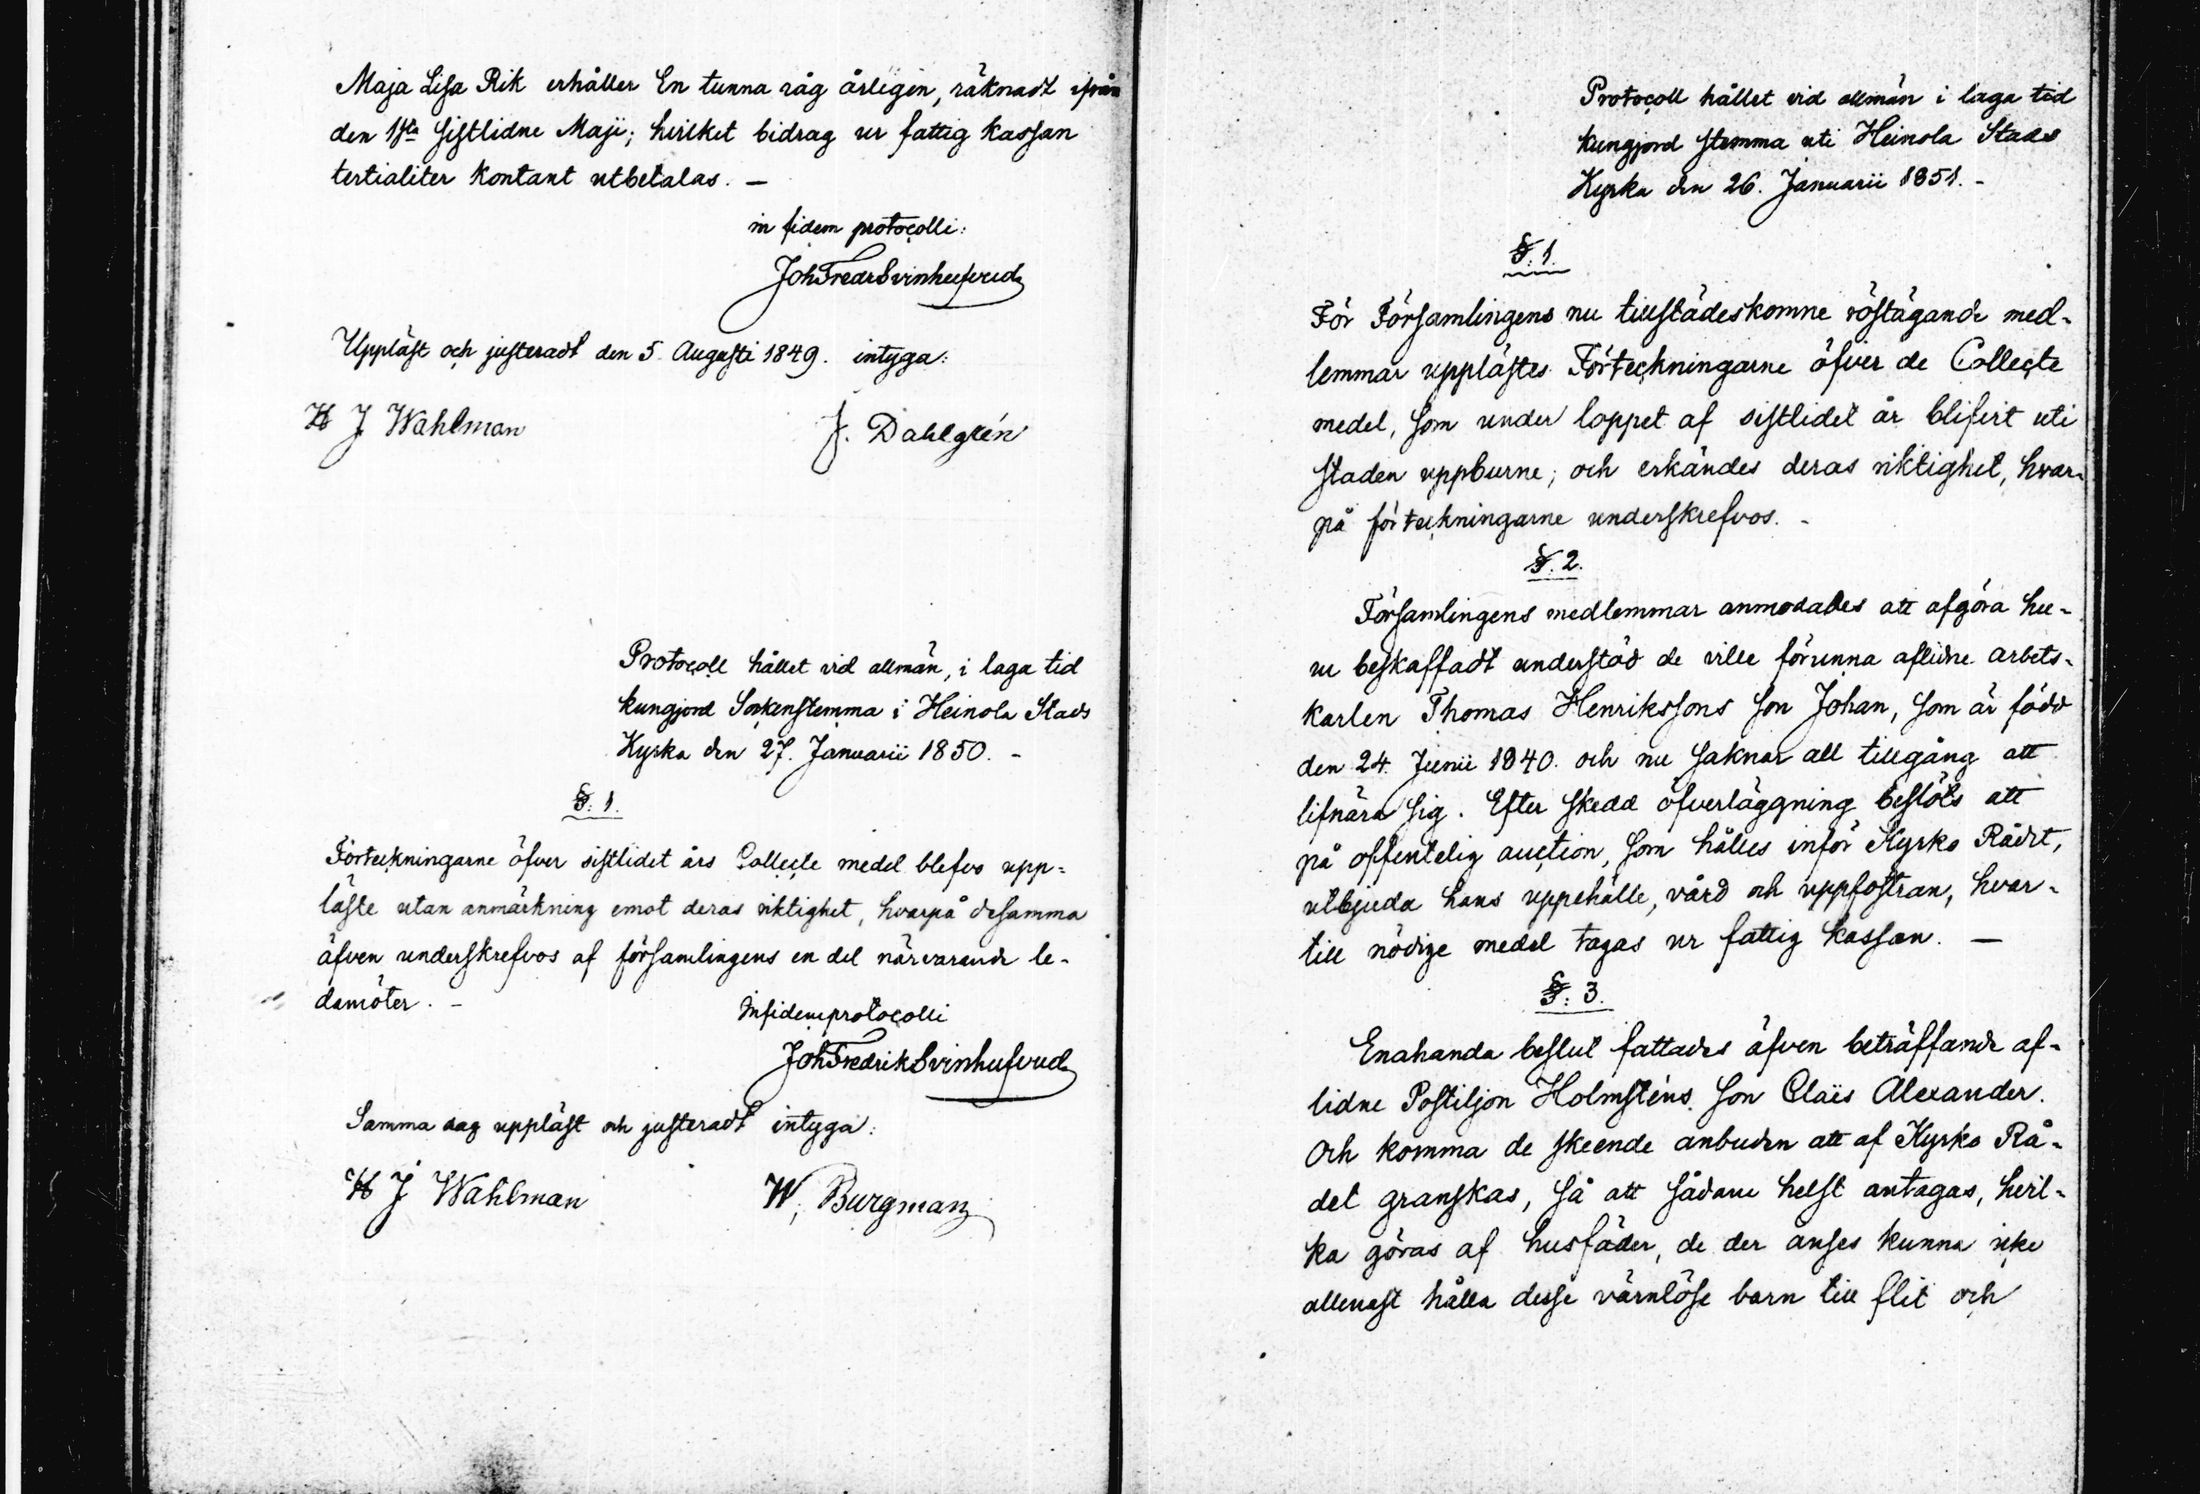 Maja Lisa Rik erhåller En tunna råg årligen, räknadt ifrån
den 1sta sistlidne Maji; hvilket bidrag ur fattig kassan
tertialiter kontant utbetalas. —
in fidem protocolli:
Joh Fredr Svinhufvud
Uppläst och justeradt den 5 Augusti 1849. intyga:
H J Wahlman
J. Dahlgrén
Protocoll hållet vid allmän, i laga tid
kungjord Sockenstemma i Heinola Stads
Kyrka den 27. Januarii 1850. -
§. 1.
Förteckningarne öfver sistlidet års Collecte medel blefvo upp=
läste utan anmärkning emot deras riktighet, hvarpå desamma
äfven underskrefvos af församlingens en del närvarande le-
damöter. -
In fidem protocolli
Joh Fredrik Svinhufvud
Samma dag uppläst och justeradt intyga:
H J Wahlman
W. Burgman
Protocoll hållet vid allmän i laga tid
kungjord stemma uti Heinola Stads
Kyrka den 26. Januarii 1851. -
§. 1.
För Församlingens nu tillstädeskomne röstägande med-
lemmar upplästes Förteckningarne öfver de Collecte
medel, som under loppet af sistlidet år blifvit uti
staden uppburne; och erkändes deras riktighet, hvar-
på förteckningarne underskrefvos. -
§. 2.
Församlingens medlemmar anmodades att afgöra hu-
ru beskaffadt understöd de ville förunna aflidne arbets-
karlen Thomas Henrikssons son Johan, som är född
den 24. Junii 1840. och nu saknar all tillgång att
lifnära sig. Efter skedd öfverläggning beslöts att
på offentelig auction, som hålles inför Kyrko Rådet,
utbjuda hans uppehälle, vård och uppfostran, hvar-
till nödige medel tagas ur fattig kassan. —
§. 3.
Enahanda beslut fattades äfven beträffande af-
lidne Postiljon Holmsténs son Claës Alexander.
Och komma de skeende anbuden att af Kyrko Rå-
det granskas, så att sådane helst antagas, hvil-
ka göras af husfäder, de der anses kunna icke
allenast hålla desse värnlöse barn till flit och